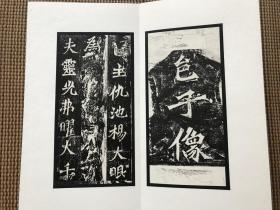 邑子像
主仇池楊大眼
為
夫靈光弗曜大千